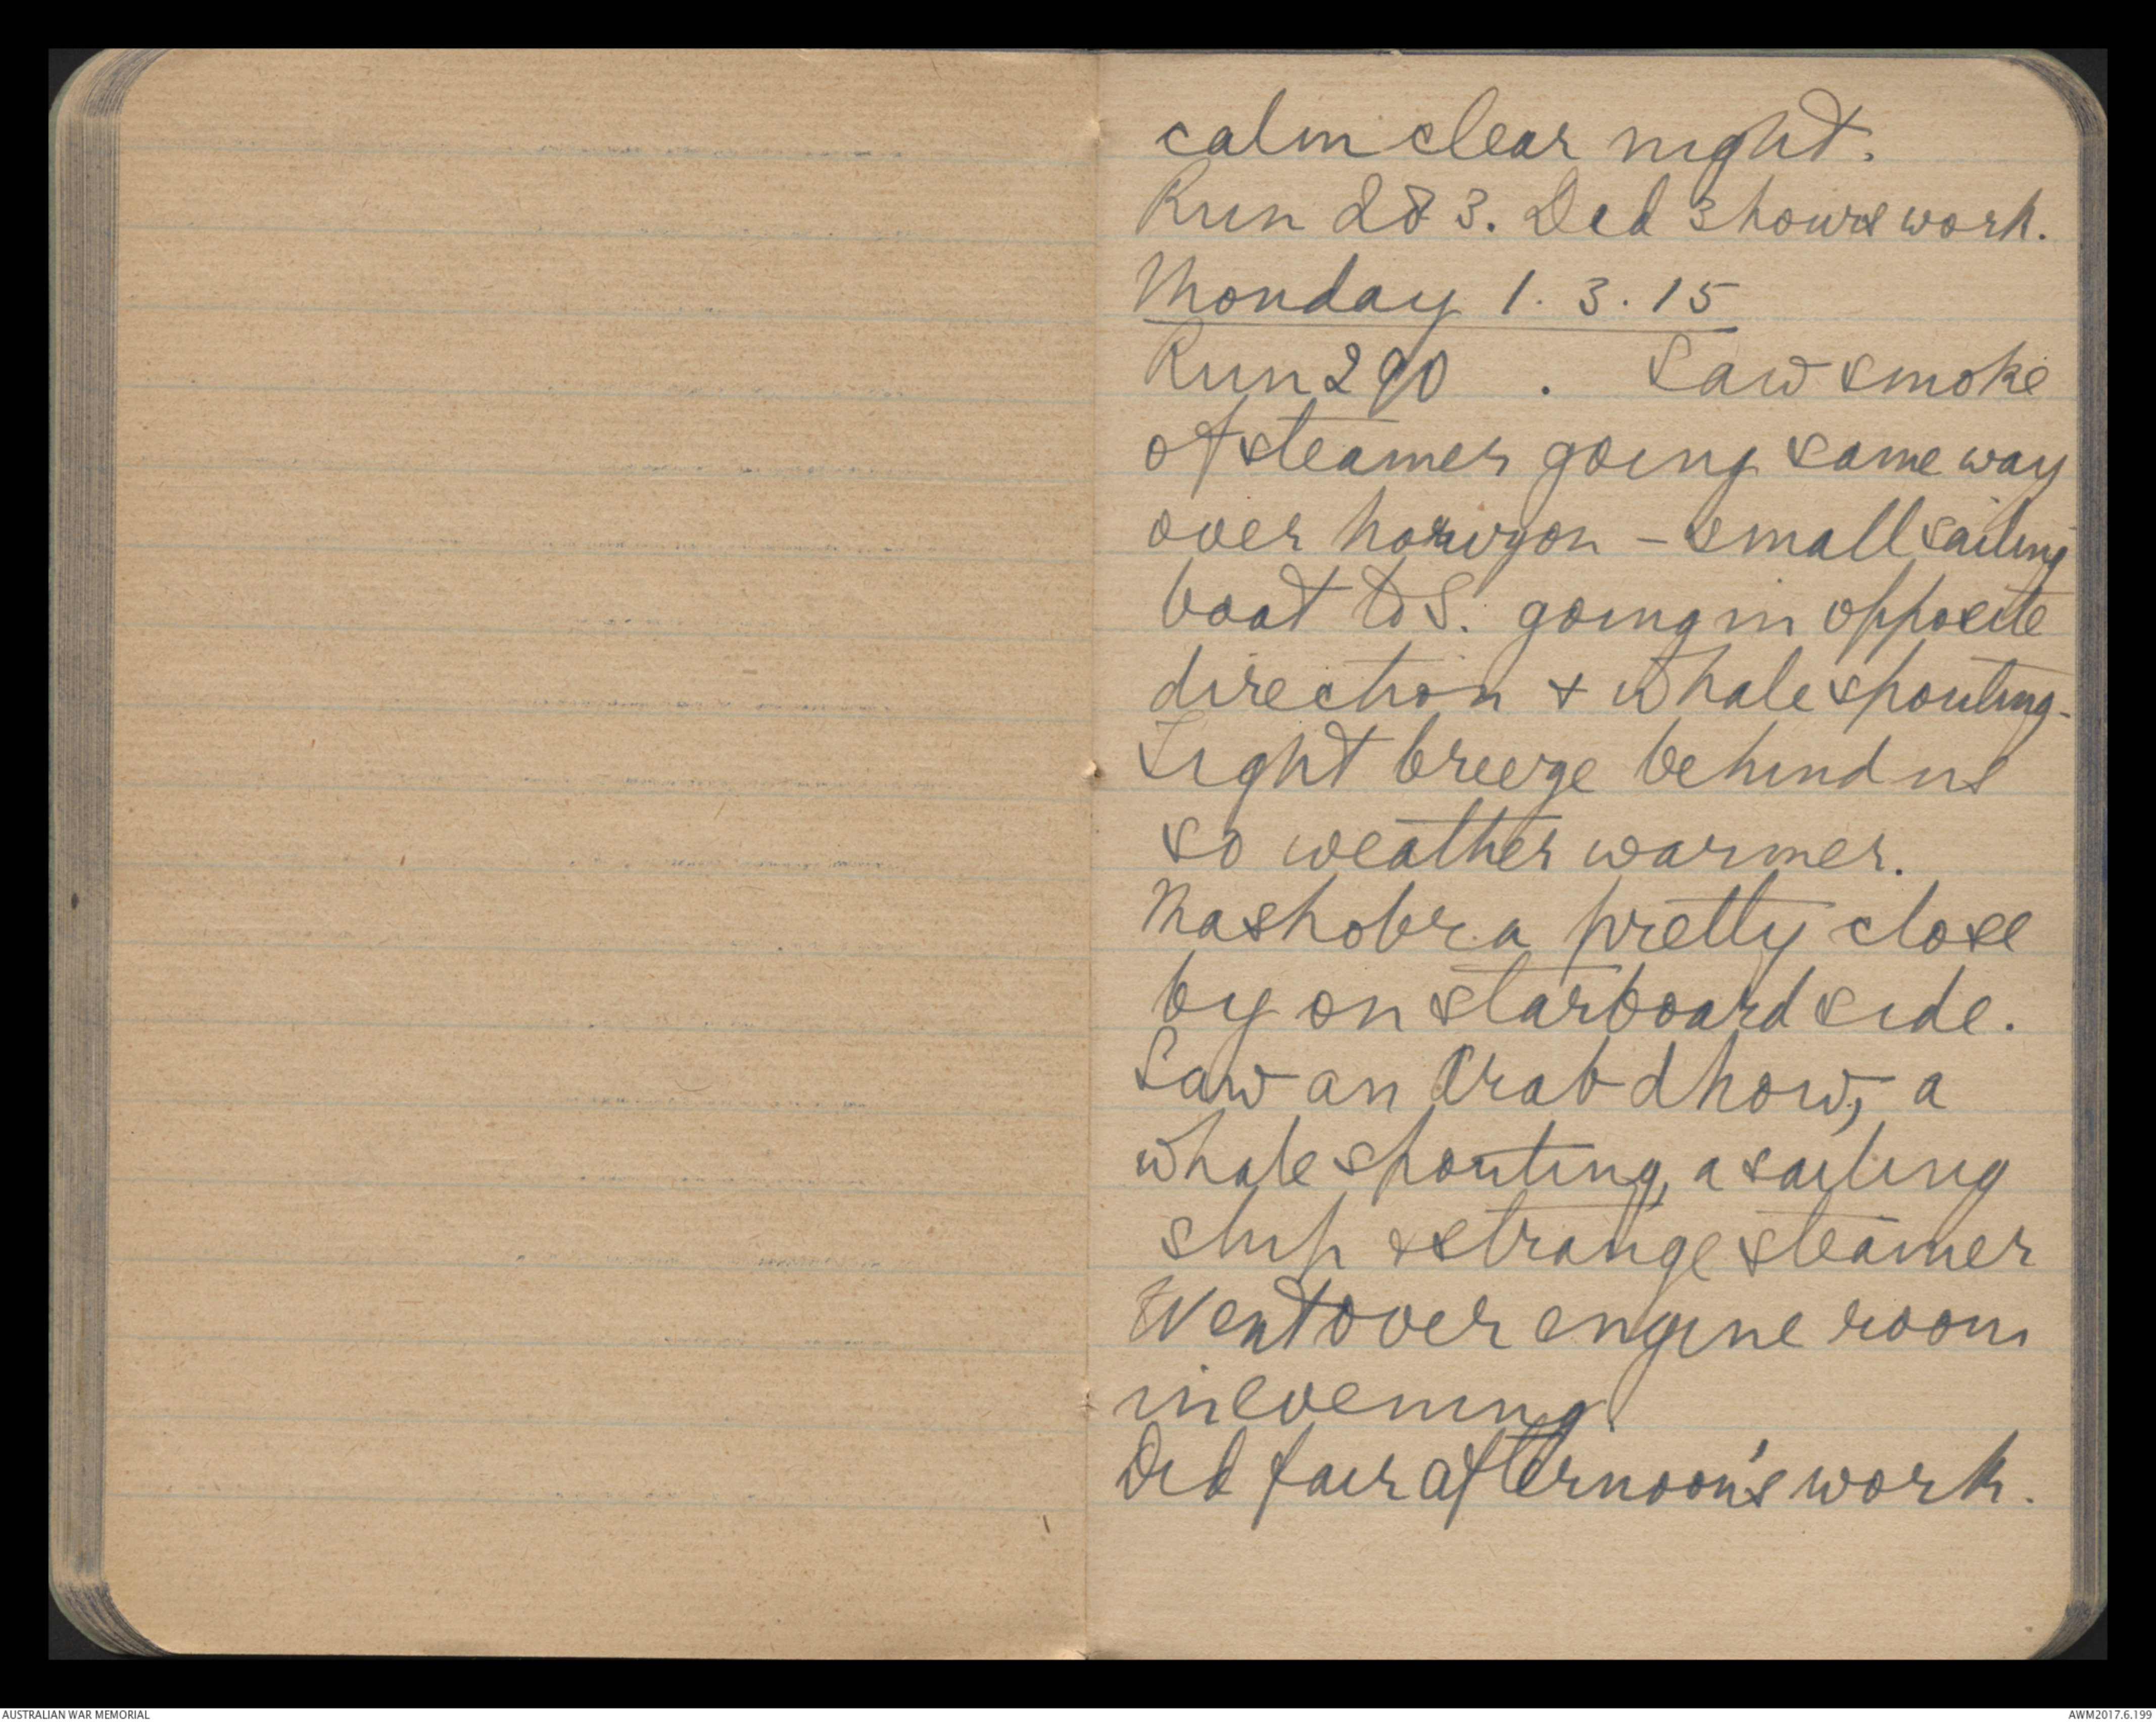 calm clear night.
Run 283. Did 3 hours work.
Monday 1.3.15
Run 290 . Saw smoke
of steamer going same way
over horizon - small sailing
boat to S. going in opposite
direction & whale spouting.
Light breeze behind us
so weather warmer.
Mashobra pretty close
by on starboard side.
Saw an Arab dhow, a
whale spouting, a sailing
ship & strange steamer
Went over engine room
in evening.
Did fair afternoon's work.
AUSTRALIAN WAR MEMORIAL
AWM2017.6.199